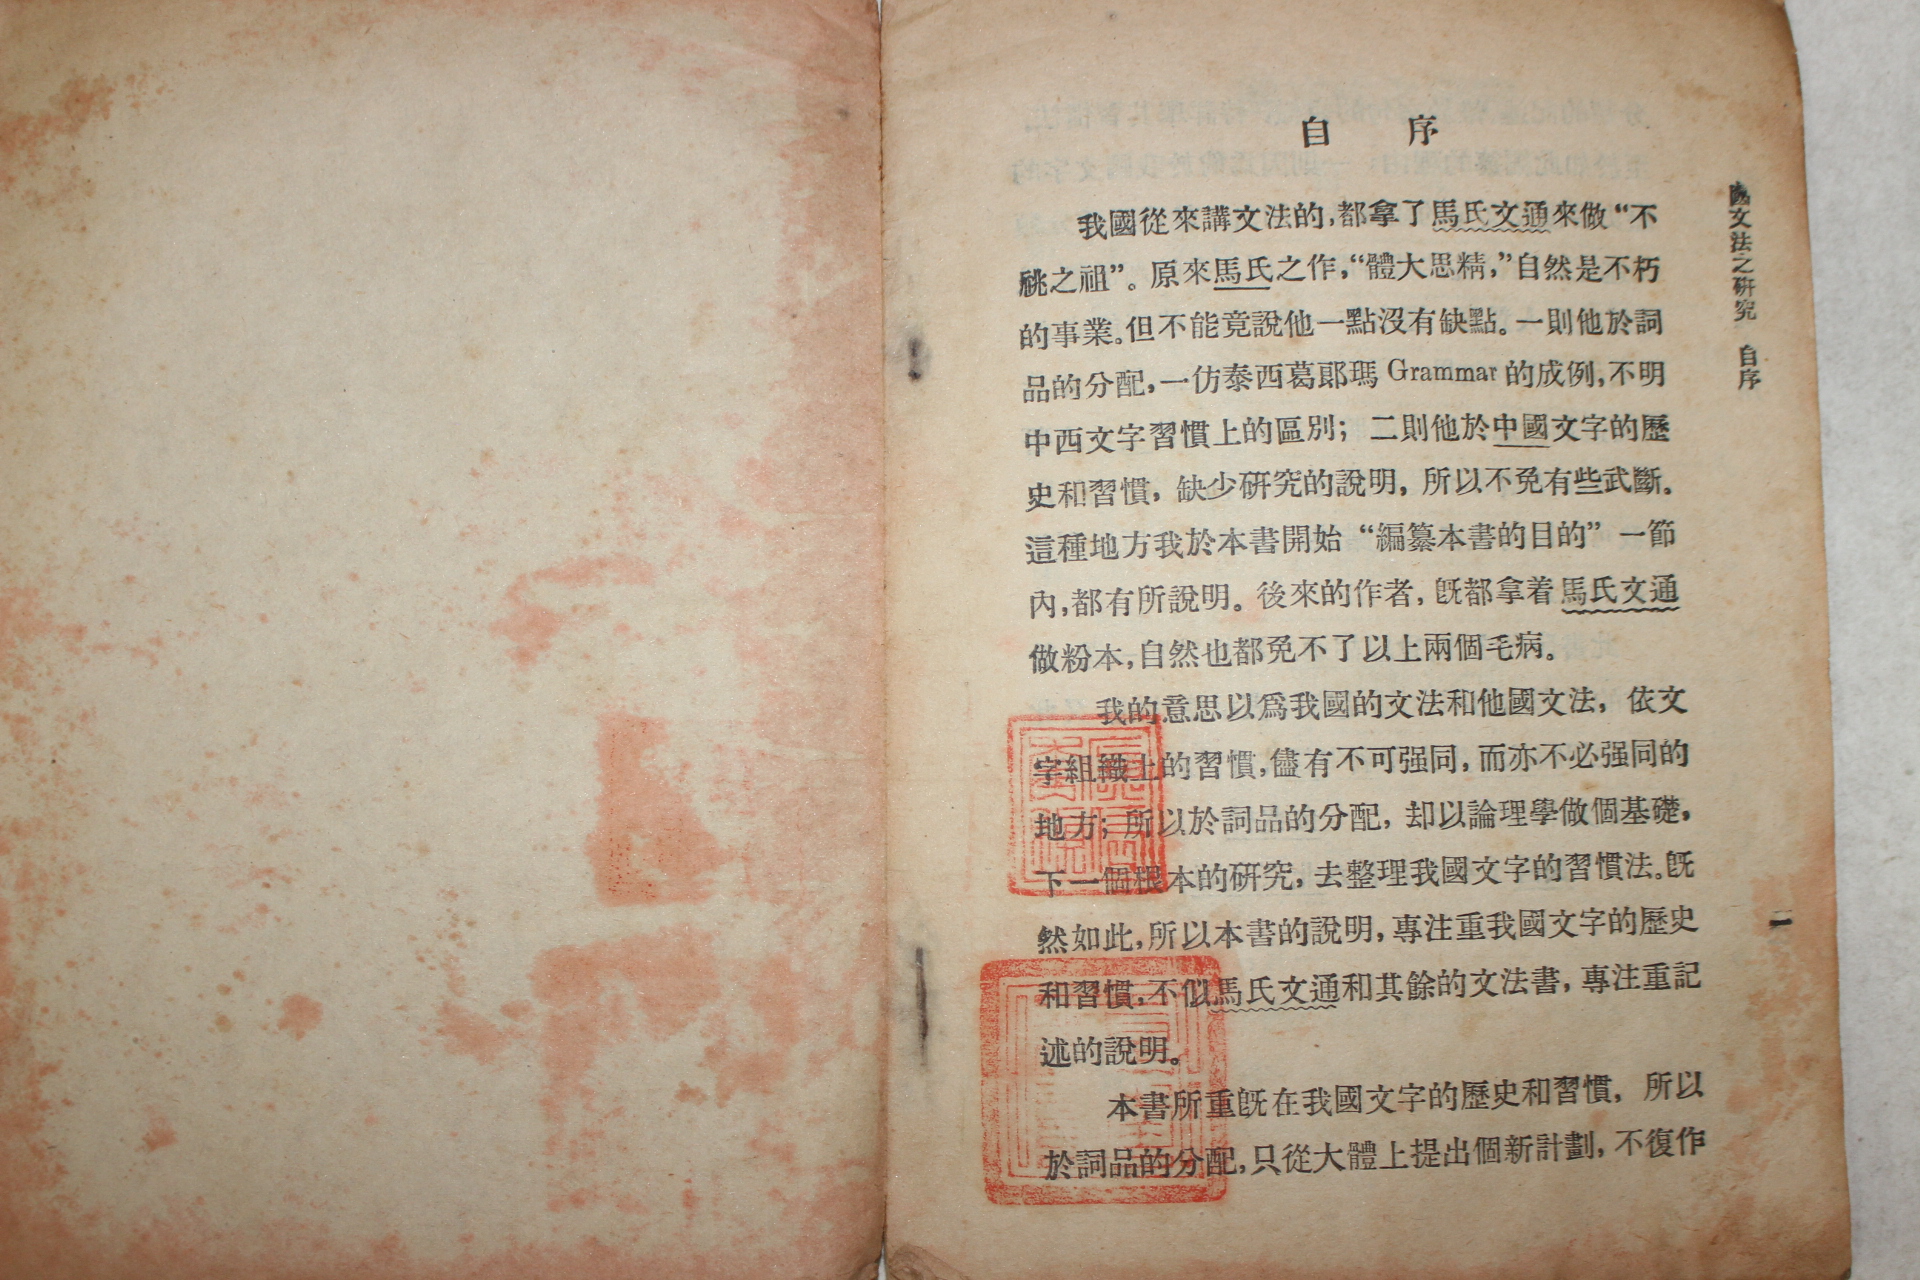 自序
我國從來講文法的,都拿了馬氏文通來做“不
祧之祖”。原來馬氏之作,“體大思精,”自然是不朽
的事業。但不能竟說他一點沒有缺點。一則他於詞
品的分配,一仿泰西葛郎瑪 Grammar 的成例,不明
中西文字習慣上的區別; 二則他於中國文字的歷
史和習慣, 缺少研究的說明, 所以不免有些武斷。
這種地方我於本書開始 “編纂本書的目的” 一節
內,都有所說明。後來的作者, 既都拿着馬氏文通
做粉本,自然也都免不了以上兩個毛病。
我的意思以爲我國的文法和他國文法, 依文
字組織上的習慣,儘有不可强同,而亦不必强同的
地方; 所以於詞品的分配, 却以論理學做個基礎,
下一個根本的研究, 去整理我國文字的習慣法。既
然如此,所以本書的說明,專注重我國文字的歷史
和習慣,不似馬氏文通和其餘的文法書, 專注重記
述的說明。
本書所重既在我國文字的歷史和習慣, 所以
於詞品的分配,只從大體上提出個新計劃, 不復作
國文法之研究 自序
一